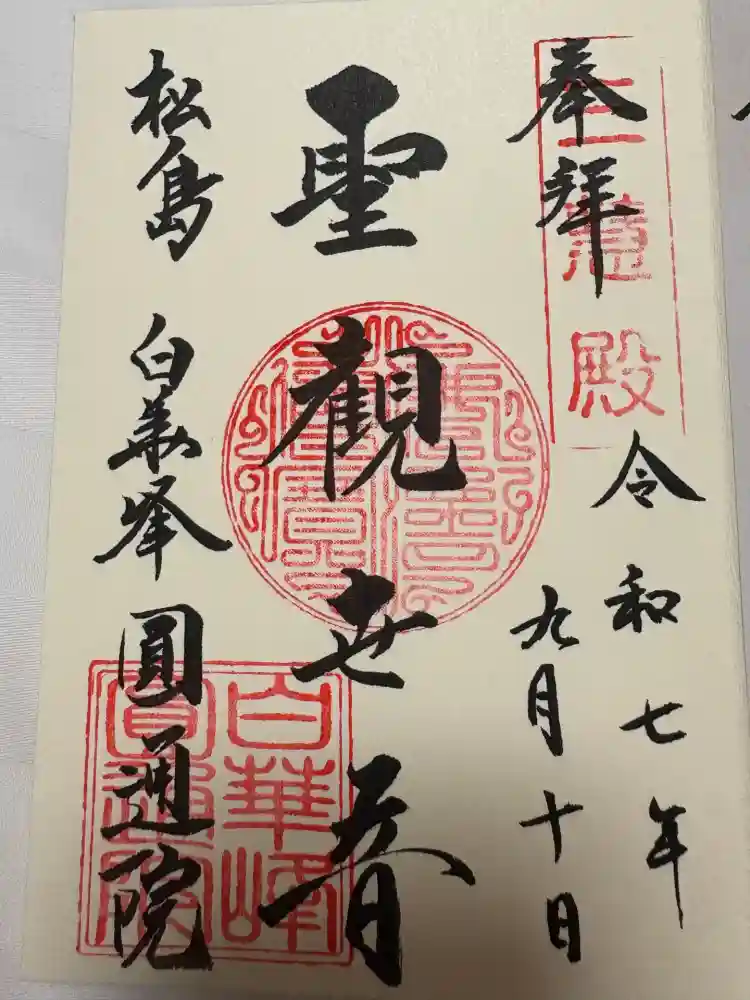 奉拝
三慧殿
令和七年
九月十日
聖觀世音
松島 白華峰 圓通院
白華峰
圓通院